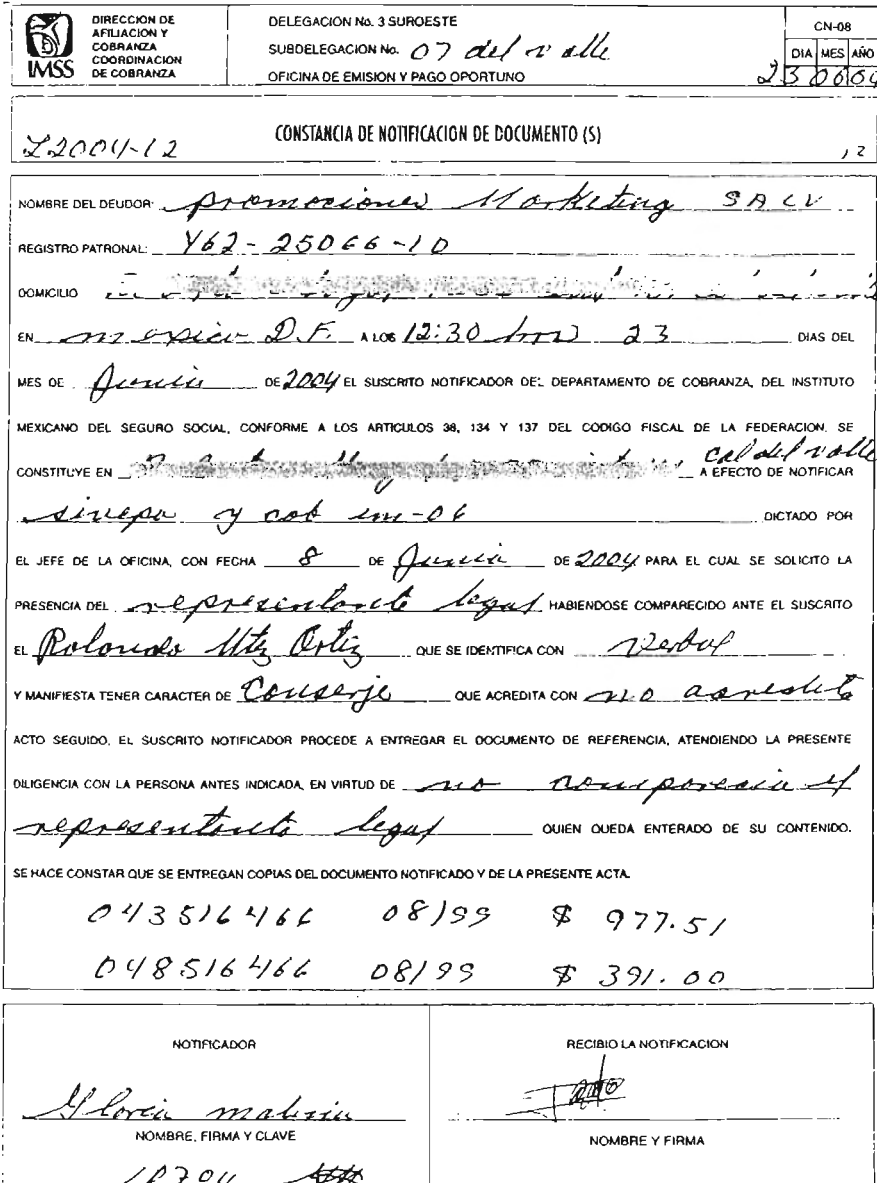 DIRECCION DE
AFILIACION Y
COBRANZA
COORDINACION
DE COBRANZA
IMSS
DELEGACION No. 3 SUROESTE
SUBDELEGACION No. 07 del valle
OFICINA DE EMISION Y PAGO OPORTUNO
CN-08
DIA MES AÑO
23 06 04
CONSTANCIA DE NOTIFICACION DE DOCUMENTO (S)
L2004-12
12
NOMBRE DEL DEUDOR: promociones Marketing SA CV
REGISTRO PATRONAL: Y62-25066-10
DOMICILIO
EN mexico D.F. A LOS 12:30 hrs 23 DIAS DEL
MES DE Junio DE 2004 EL SUSCRITO NOTIFICADOR DEL DEPARTAMENTO DE COBRANZA, DEL INSTITUTO
MEXICANO DEL SEGURO SOCIAL, CONFORME A LOS ARTICULOS 38, 134 Y 137 DEL CODIGO FISCAL DE LA FEDERACION. SE
CONSTITUYE EN col del valle A EFECTO DE NOTIFICAR
sivepa y cob em-06 DICTADO POR
EL JEFE DE LA OFICINA, CON FECHA 8 DE Junio DE 2004 PARA EL CUAL SE SOLICITO LA
PRESENCIA DEL representante legal HABIENDOSE COMPARECIDO ANTE EL SUSCRITO
EL Rolando Mtz Ortiz QUE SE IDENTIFICA CON Verbal
Y MANIFIESTA TENER CARACTER DE Conserje QUE ACREDITA CON no acredita
ACTO SEGUIDO, EL SUSCRITO NOTIFICADOR PROCEDE A ENTREGAR EL DOCUMENTO DE REFERENCIA, ATENDIENDO LA PRESENTE
DILIGENCIA CON LA PERSONA ANTES INDICADA, EN VIRTUD DE no comparecia el
representante legal QUIEN QUEDA ENTERADO DE SU CONTENIDO.
SE HACE CONSTAR QUE SE ENTREGAN COPIAS DEL DOCUMENTO NOTIFICADO Y DE LA PRESENTE ACTA.
043516466 08/99 $ 977.51
048516466 08/99 $ 391.00
NOTIFICADOR
RECIBIO LA NOTIFICACION
Gloria
NOMBRE, FIRMA Y CLAVE
NOMBRE Y FIRMA